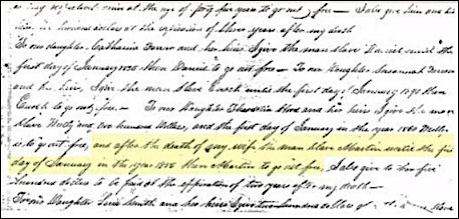 at the age of forty five years to go out free — I also give him and his
heirs five hundred dollars at the expiration of three years after my death
To our daughter Catharine and her heirs I give the man slave Daniel until the
first day of January 1850 then Daniel to go out free — To our daughter Susannah
and her heirs, I give the man slave Enoch until the first day of January 1870 then
Enoch to go out free — To our daughter and her heirs I give the man
slave two hundred dollars, and the first day of January in the year 1860
is to go out free, and after the death of my wife the man slave Martin until the first
day of January in the year 1855 then Martin to go out free, I also give to her five
hundred dollars to be paid at the expiration of two years after my death —
To our daughter and her heirs I give two hundred dollars